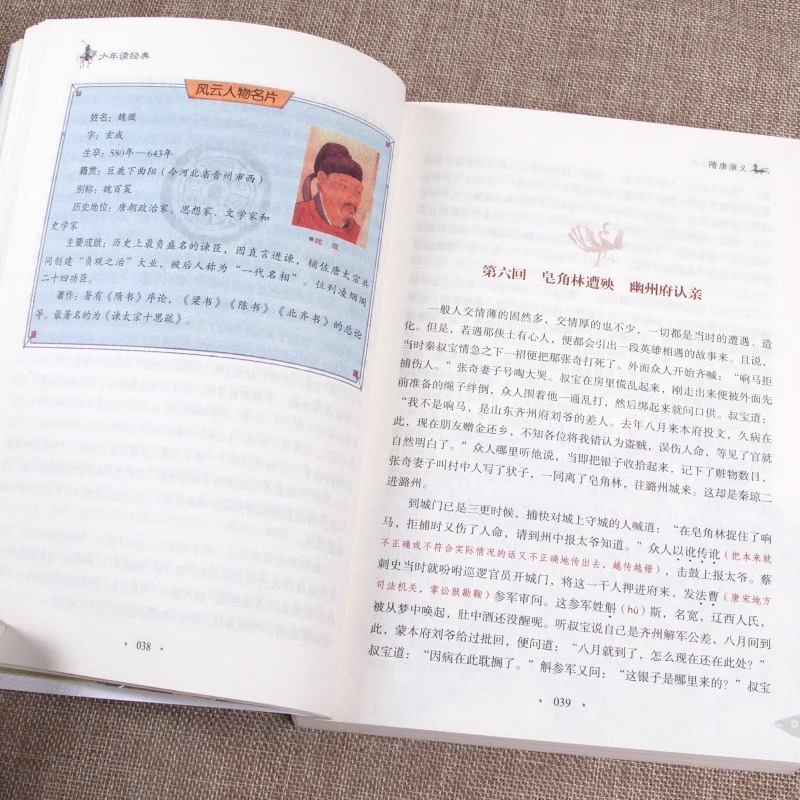 少年读经典
风云人物名片
姓名：魏徵
字：玄成
生卒：580年—643年
籍贯：巨鹿下曲阳（今河北省晋州市西）
别称：魏百策
历史地位：唐朝政治家、思想家、文学家和
史学家
●魏 徵
主要成就：历史上最负盛名的谏臣，因直言进谏，辅佐唐太宗共
同创建“贞观之治”大业，被后人称为“一代名相”。位列凌烟阁
二十四功臣。
著作：著有《隋书》序论，《梁书》《陈书》《北齐书》的总论
等。最著名的为《谏太宗十思疏》。
· 038 ·
隋唐演义
第六回 皂角林遭殃 幽州府认亲
一般人交情薄的固然多，交情厚的也不少，一切都是当时的遭遇、造
化。但是，若遇那侠士有心人，便都会引出一段英雄相遇的故事来。且说，
当时秦叔宝情急之下一招便把那张奇打死了。外面众人开始齐喊：“响马拒
捕伤人。”张奇妻子号啕大哭。叔宝在房里慌乱起来，刚走出来便被外面先
前准备的绳子绊倒，众人围着他一通乱打，然后绑起来就问口供。叔宝道：
“我不是响马，是山东齐州府刘爷的差人。去年八月来本府投文，久病在
此，现在朋友赠金还乡，不知各位将我错认为盗贼，误伤人命，等见了官就
自然明白了。”众人哪里听他说，当即把银子收拾起来，记下了赃物数目，
张奇妻子叫村中人写了状子，一同离了皂角林，往潞州城来。这却是秦琼二
进潞州。
到城门已是三更时候，捕快对城上守城的人喊道：“在皂角林捉住了响
马，拒捕时又伤了人命，请到州中报太爷知道。”众人以讹传讹（把本来就
不正确或不符合实际情况的话又不正确地传出去，越传越错），击鼓上报太爷。蔡
刺史当时就吩咐巡逻官员开城门，将这一干人押进府来，发法曹（唐宋地方
司法机关，掌讼狱勘鞫）参军审问。这参军姓斛（hú）斯，名宽，辽西人氏，
被从梦中唤起，肚中酒还没醒呢。听叔宝说自己是齐州解军公差，八月间到
此，蒙本府刘爷给过批回，便问道：“八月就到了，怎么现在还在此处？”
叔宝道：“因病在此耽搁了。”斛参军又问：“这银子是哪里来的？”叔宝
· 039 ·